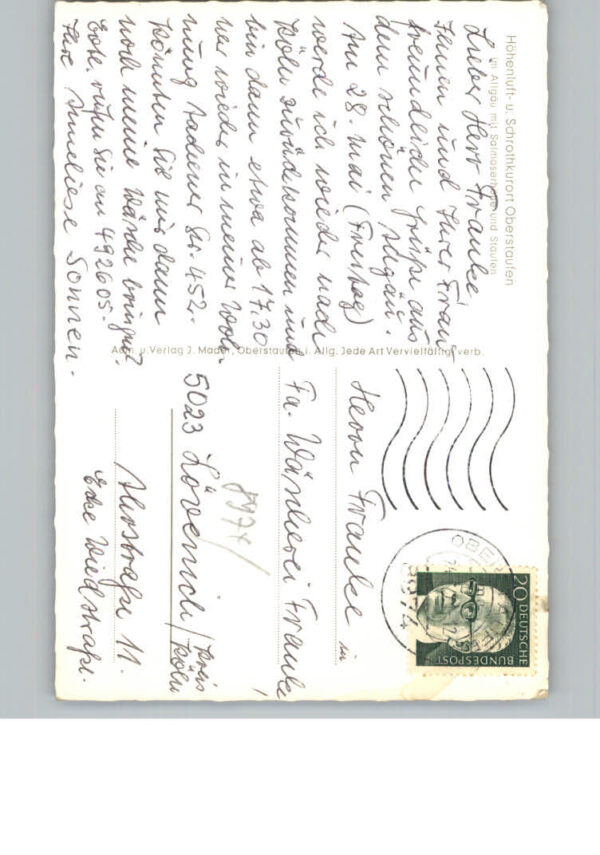 Höhenluft- u. Schrothkurort Oberstaufen
im Allgäu mit Salmaserhöhe und Staufen
Lieber Herr Franke,
Ihnen und Ihrer Frau
freundliche Grüße aus
dem schönen Allgäu.
Am 28. Mai (Freitag)
werde ich wieder nach
Köln zurückkommen und
bin dann etwa ab 17.30
Uhr wieder in meiner Woh-
nung Aachener Str. 452.
Könnten Sie mir dann
noch meine Wäsche bringen?
Evtl. rufen Sie an 492605.
Ihre Anneliese Sonnen-
Adm. u. Verlag J. Mader, Oberstaufen i. Allg. Jede Art Vervielfältig. verb.
Herrn Franke in
Fa. Wäscherei Franke!
5023 Lövenich / Kreis
Köln
Ahrstraße 11.
Ecke Wiedstraße.
8974
20
DEUTSCHE
BUNDESPOST